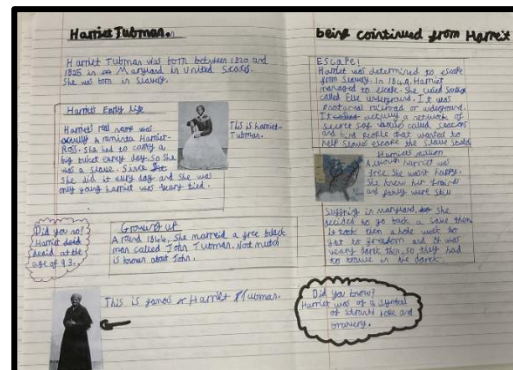 Harriet Tubman.
Harriet Tubman was born between 1820 and
1825 in Maryland in United States.
She was born in slavery.
Harriet's Early Life
Harriet's real name was
a minta Harriet-
Ross. She had to carry a
big bucket every day. So she
was a slave. Since
she did it every day and she was
only young harriet was very tied.
This is harriet-
Tubman.
Did you no?
Harriet died
at the
age of 93.
Growing up
Around 1844, she married a free black
man called John Tubman. Not much
is known about John.
This is Harriet Tubman.
being continued from Harriet
ESCAPE!
Harriet was determined to escape
from slavery. In 1849 Harriet
managed to escape. She used
called the undergound. It was
not a real railroad or undergound.
It actually a network of
secret
and people that wanted to
help slaves escape the slave states
Harriet's mission
Although Harriet was
free she wasn't happy.
She knew her friends
and family were still
suffring in maryland, so she
decided to go back a save them
It took them a whole week to
get to freedom and it was
very dark then, so they had
to travel in the dark.
Did you know?
Harriet was of a symbol
of strength love and
bravery.